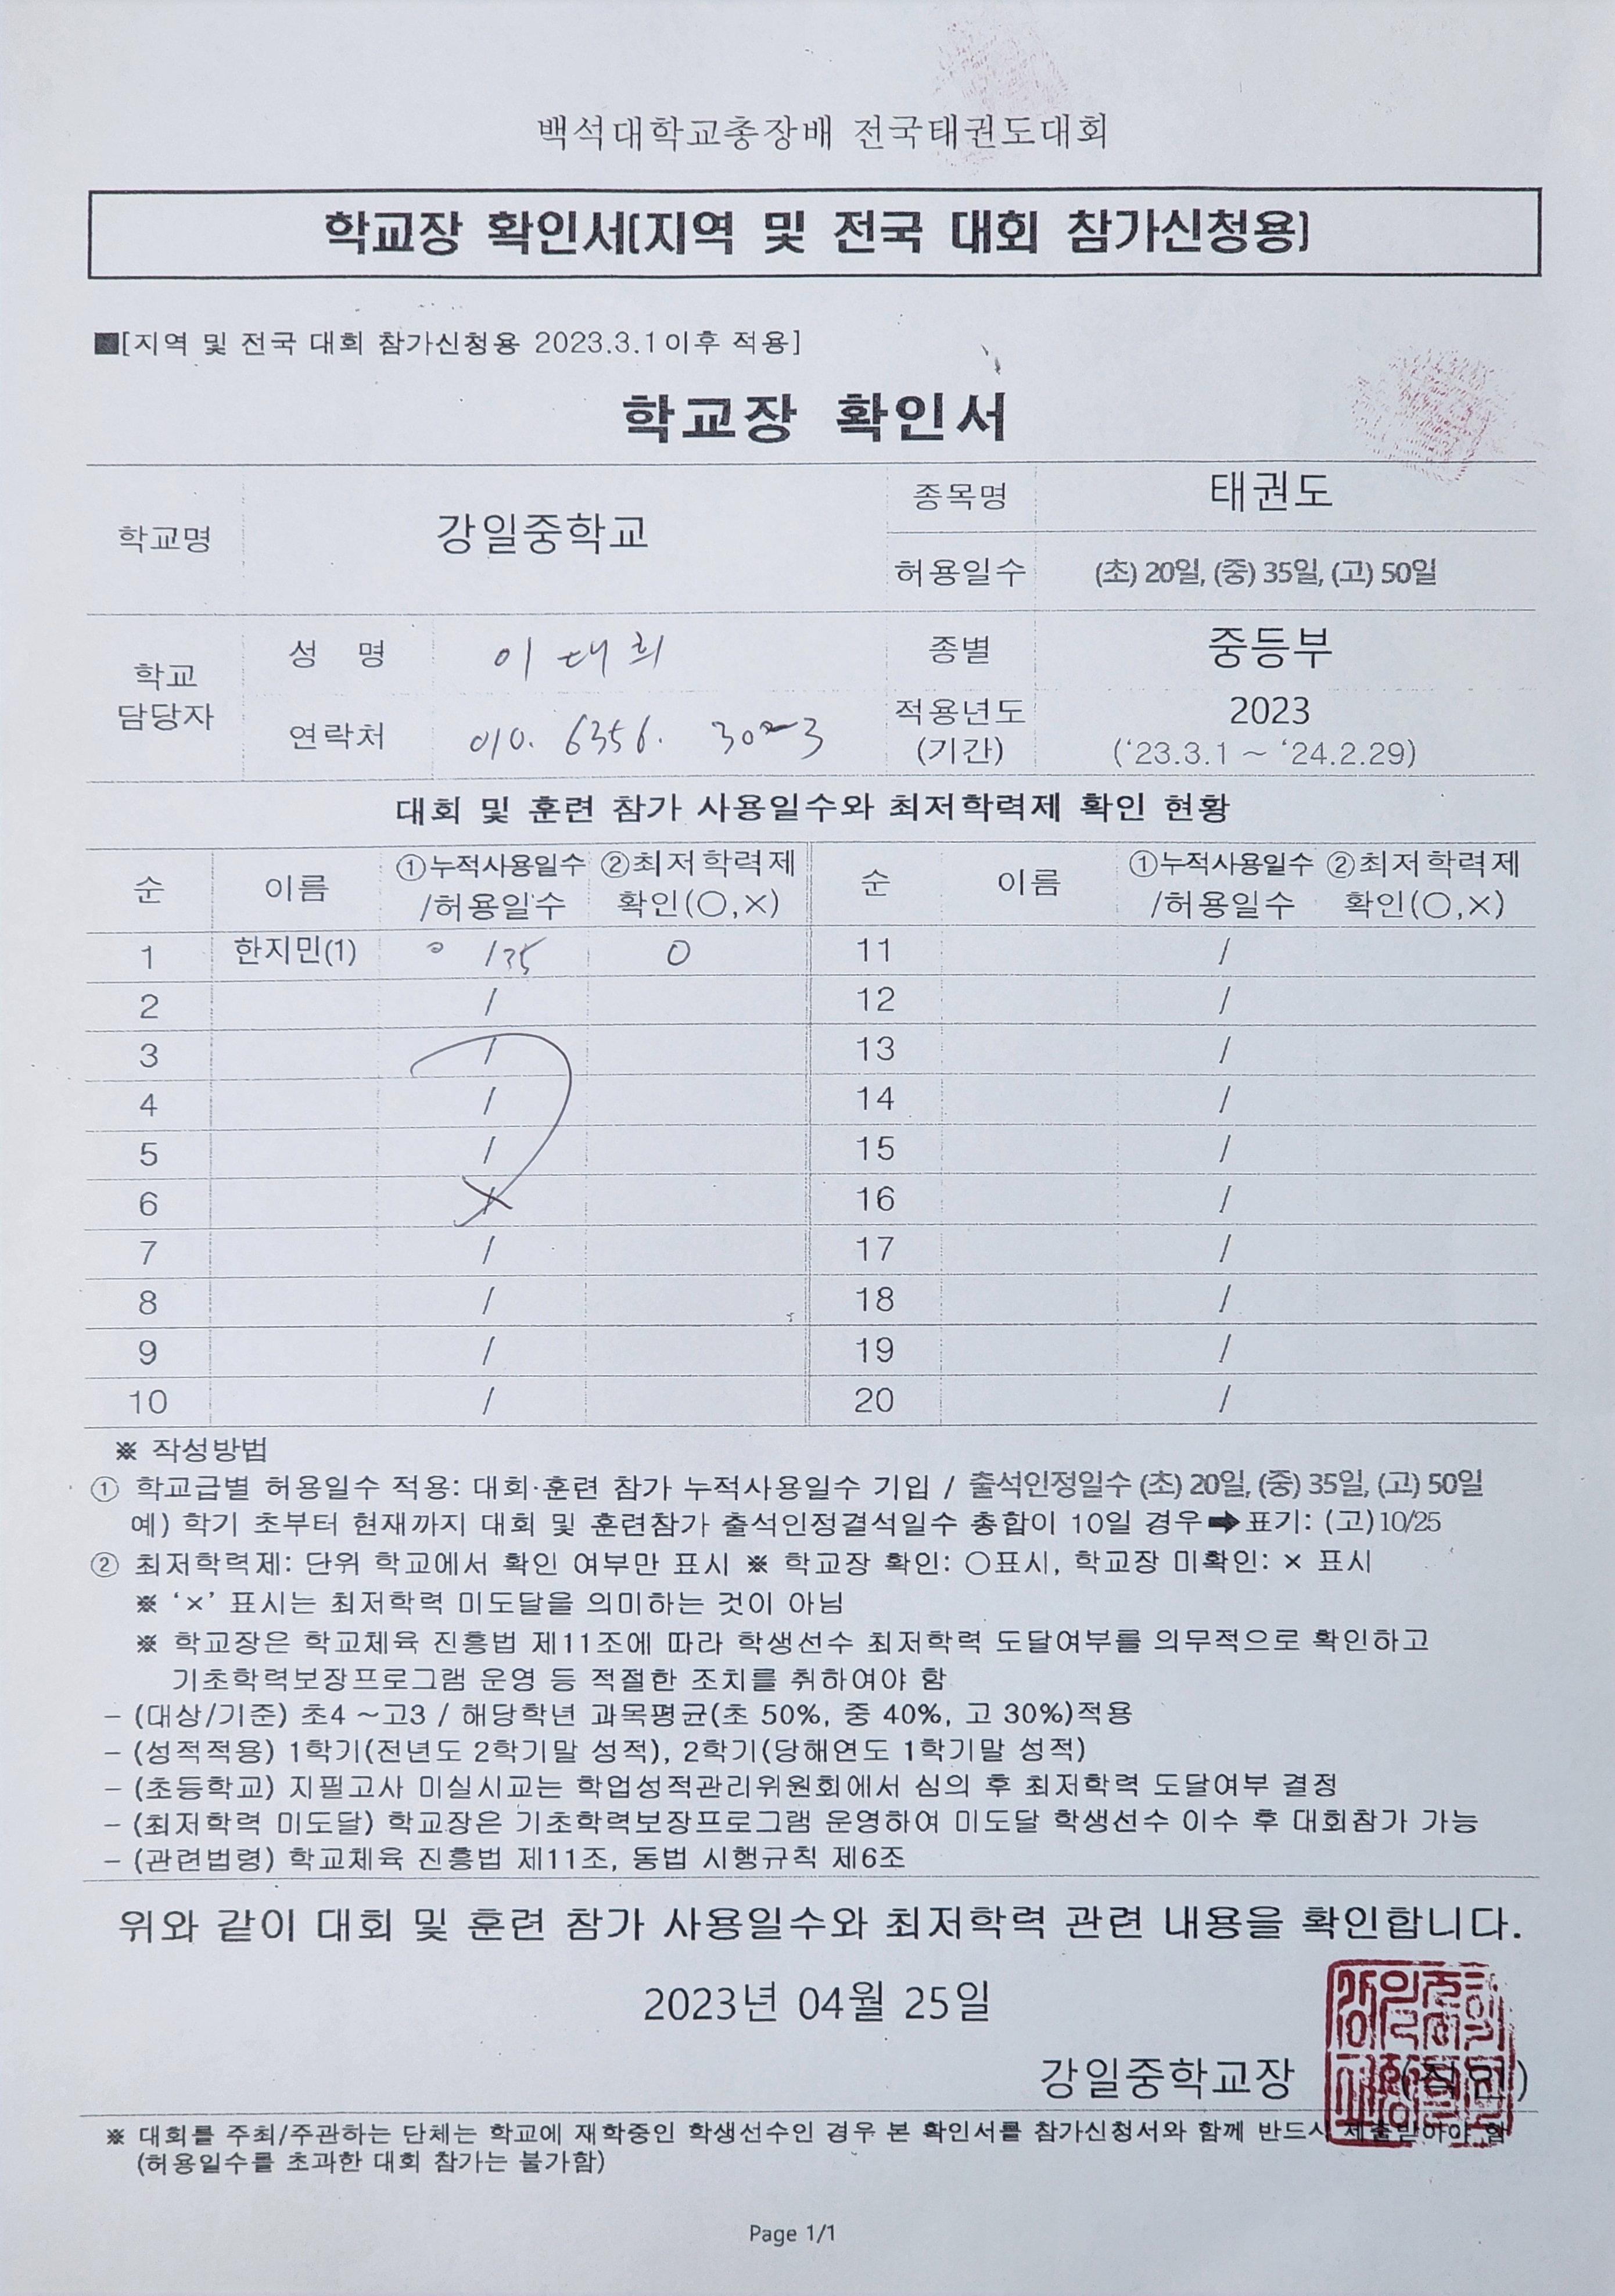 백석대학교총장배 전국태권도대회
학교장 확인서[지역 및 전국 대회 참가신청용]
■[지역 및 전국 대회 참가신청용 2023.3.1이후 적용]
학교장 확인서
학교명 강일중학교 종목명 태권도
허용일수 (초) 20일, (중) 35일, (고) 50일
학교 담당자 성 명 이대희 종별 중등부
연락처 010. 6356. 적용년도 (기간) 2023 ('23.3.1 ~ '24.2.29)
대회 및 훈련 참가 사용일수와 최저학력제 확인 현황
순 이름 ①누적사용일수 /허용일수 ②최저학력제 확인(○,×) 순 이름 ①누적사용일수 /허용일수 ②최저학력제 확인(○,×)
1 한지민(1) 0 /35 O 11 /
2 / 12 /
3 / 13 /
4 / 14 /
5 / 15 /
6 / 16 /
7 / 17 /
8 / 18 /
9 / 19 /
10 / 20 /
※ 작성방법
① 학교급별 허용일수 적용: 대회·훈련 참가 누적사용일수 기입 / 출석인정일수 (초) 20일, (중) 35일, (고) 50일
예) 학기 초부터 현재까지 대회 및 훈련참가 출석인정결석일수 총합이 10일 경우➡표기: (고)10/25
② 최저학력제: 단위 학교에서 확인 여부만 표시 ※ 학교장 확인: ○표시, 학교장 미확인: × 표시
※ '×' 표시는 최저학력 미도달을 의미하는 것이 아님
※ 학교장은 학교체육 진흥법 제11조에 따라 학생선수 최저학력 도달여부를 의무적으로 확인하고
기초학력보장프로그램 운영 등 적절한 조치를 취하여야 함
- (대상/기준) 초4 ~고3 / 해당학년 과목평균(초 50%, 중 40%, 고 30%)적용
- (성적적용) 1학기(전년도 2학기말 성적), 2학기(당해연도 1학기말 성적)
- (초등학교) 지필고사 미실시교는 학업성적관리위원회에서 심의 후 최저학력 도달여부 결정
- (최저학력 미도달) 학교장은 기초학력보장프로그램 운영하여 미도달 학생선수 이수 후 대회참가 가능
- (관련법령) 학교체육 진흥법 제11조, 동법 시행규칙 제6조
위와 같이 대회 및 훈련 참가 사용일수와 최저학력 관련 내용을 확인합니다.
2023년 04월 25일
강일중학교장 (직인)
※ 대회를 주최/주관하는 단체는 학교에 재학중인 학생선수인 경우 본 확인서를 참가신청서와 함께 반드시 제출받아야 함
(허용일수를 초과한 대회 참가는 불가함)
Page 1/1